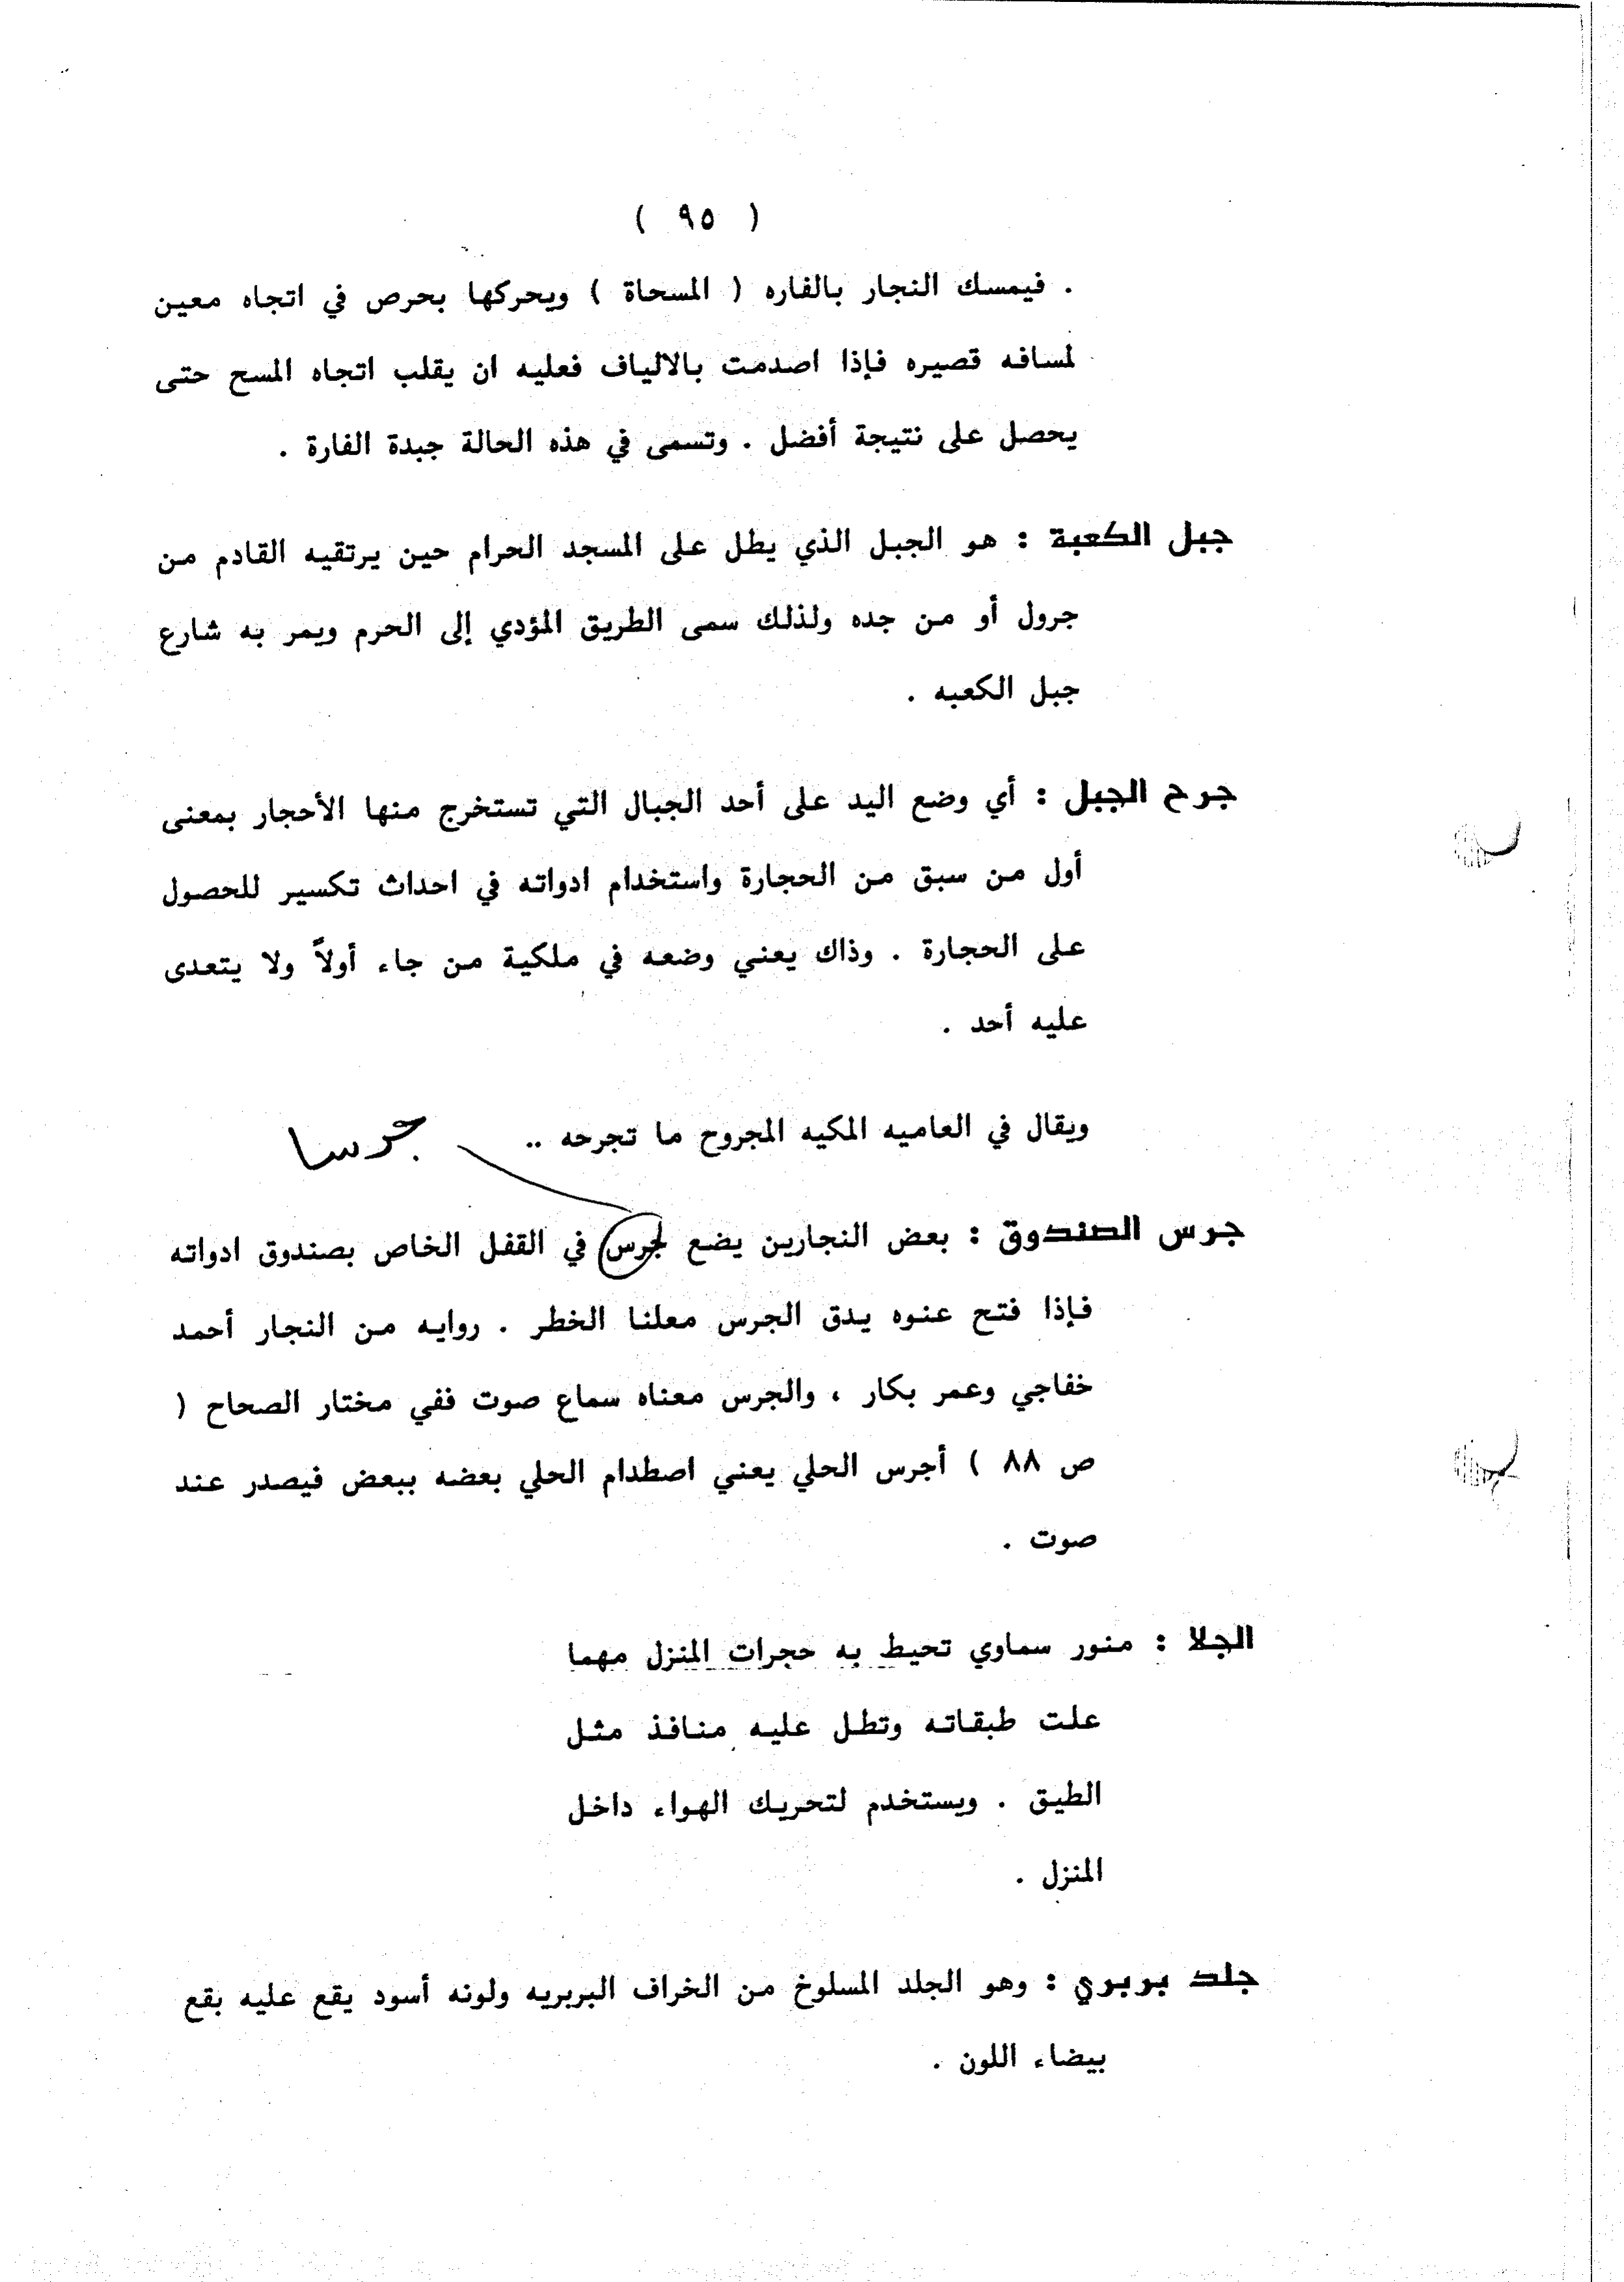 ( ٩٥ )
. فيمسك النجار بالفاره ( المسحاة ) ويحركها بحرص في اتجاه معين
لمسافه قصيره فإذا اصدمت بالالياف فعليه ان يقلب اتجاه المسح حتى
يحصل على نتيجة أفضل . وتسمى في هذه الحالة جبدة الفارة .
جبل الكعبة : هو الجبل الذي يطل على المسجد الحرام حين يرتقيه القادم من
جرول أو من جده ولذلك سمى الطريق المؤدي إلى الحرم ويمر به شارع
جبل الكعبه .
جرح الجبل : أي وضع اليد على أحد الجبال التي تستخرج منها الأحجار بمعنى
أول من سبق من الحجارة واستخدام ادواته في احداث تكسير للحصول
على الحجارة . وذاك يعني وضعه في ملكية من جاء أولاً ولا يتعدى
عليه أحد .
ويقال في العاميه المكيه المجروح ما تجرحه ..
جرسا
جرس الصندوق : بعض النجارين يضع لجرس في القفل الخاص بصندوق ادواته
فإذا فتح عنوه يدق الجرس معلنا الخطر . روايه من النجار أحمد
خفاجي وعمر بكار ، والجرس معناه سماع صوت ففي مختار الصحاح (
ص ٨٨ ) أجرس الحلي يعني اصطدام الحلي بعضه ببعض فيصدر عند
صوت .
الجلا : منور سماوي تحيط به حجرات المنزل مهما
علت طبقاته وتطل عليه منافذ مثل
الطيق . ويستخدم لتحريك الهواء داخل
المنزل .
جلد بربري : وهو الجلد المسلوخ من الخراف البربريه ولونه أسود يقع عليه بقع
بيضاء اللون .